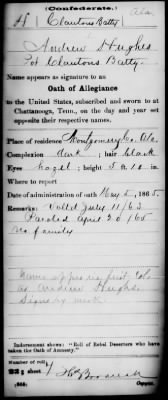 (Confederate.)
H | Clantons Batty. | Ala.
Andrew Hughes
Pvt Clantons Batty.
Name appears as signature to an
Oath of Allegiance
to the United States, subscribed and sworn to at
Chattanooga, Tenn., on the day and year set
opposite their respective names.
Place of residence Montgomery Co. Ala.
Complexion dark ; hair black
Eyes hazel ; height 5 ft. in.
Where to report
Date of administration of oath May 5, 1865.
Remarks: Volld July 11/63
Paroled April 20/65
No family
Name appears first Col
as Andrew Hughes.
Signs by mark.
Indorsement shows: "Roll of Rebel Deserters who have
taken the Oath of Amnesty."
Number of roll:
sheet
(868) Copyist.